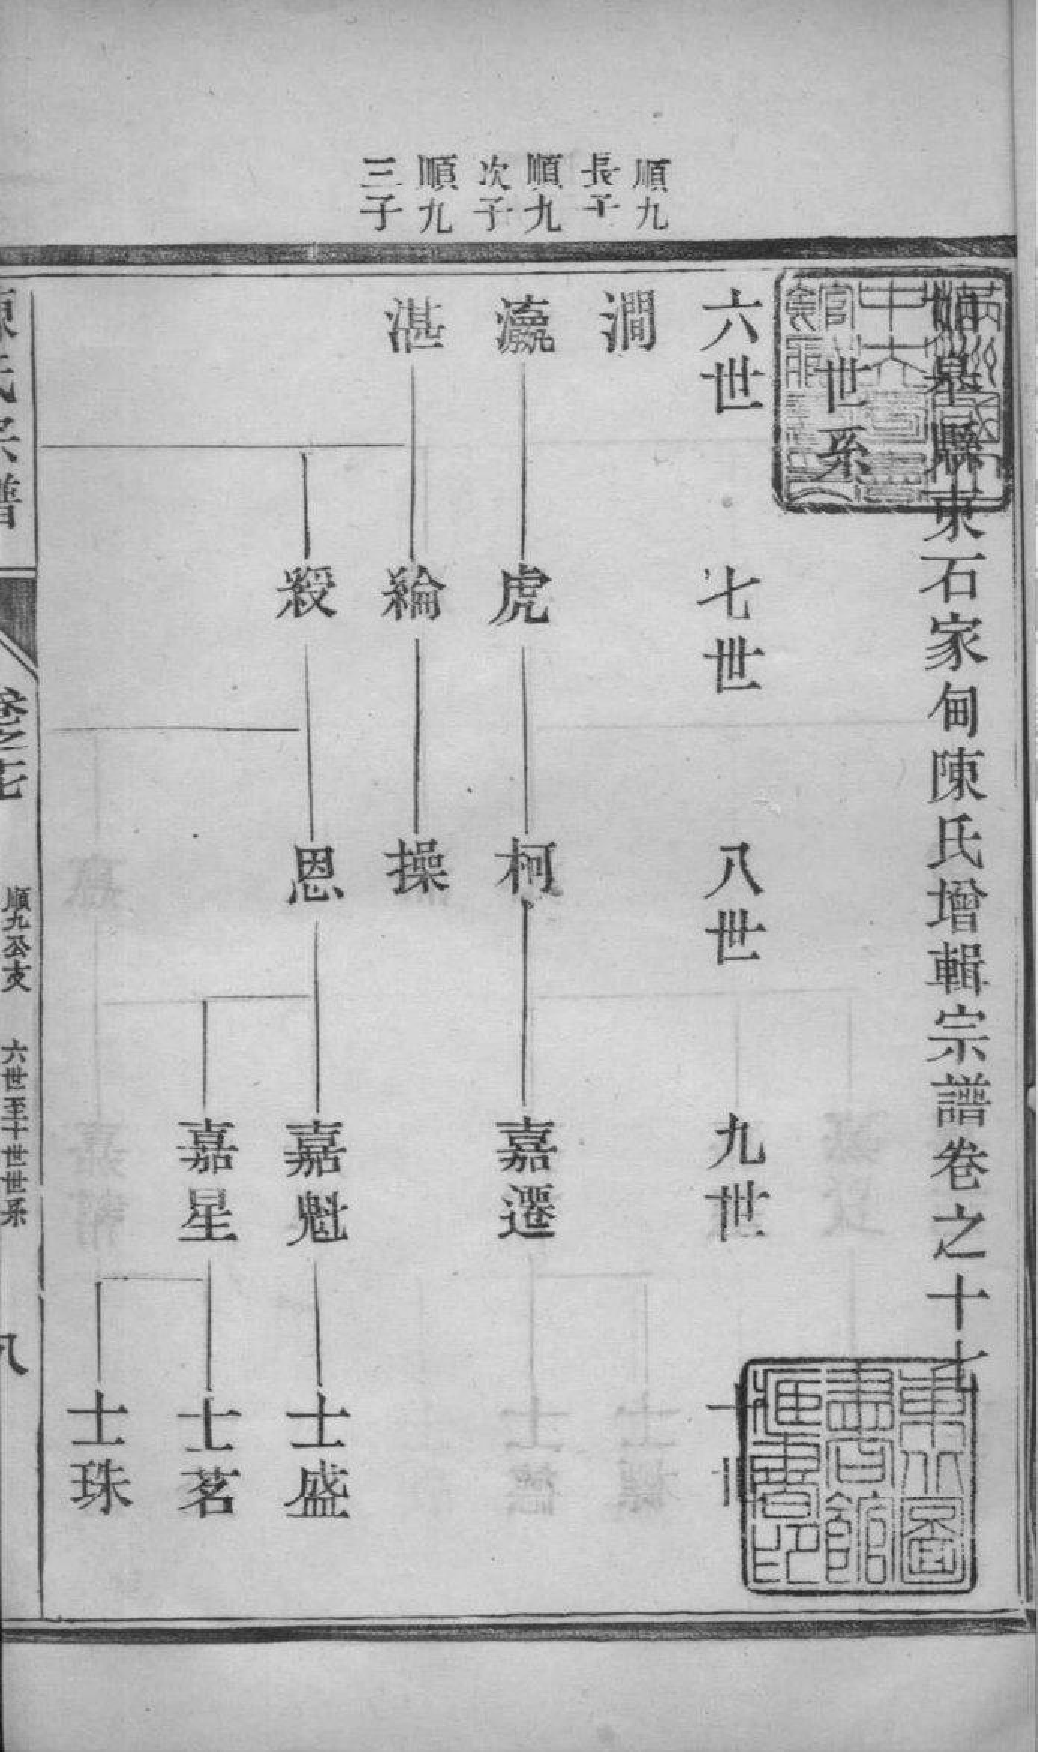 如皋縣東石家甸陳氏增輯宗譜卷之十七
世系
六世 七世 八世 九世 十世
順九長子
澗
順九次子
瀛 虎 柯 嘉遷
順九三子
湛 綸 操
綬 恩 嘉魁 士盛
嘉星 士茗
士珠
陳氏宗譜 卷之十七 順九公支 六世至十世世系 八
東北圖書館所藏書印